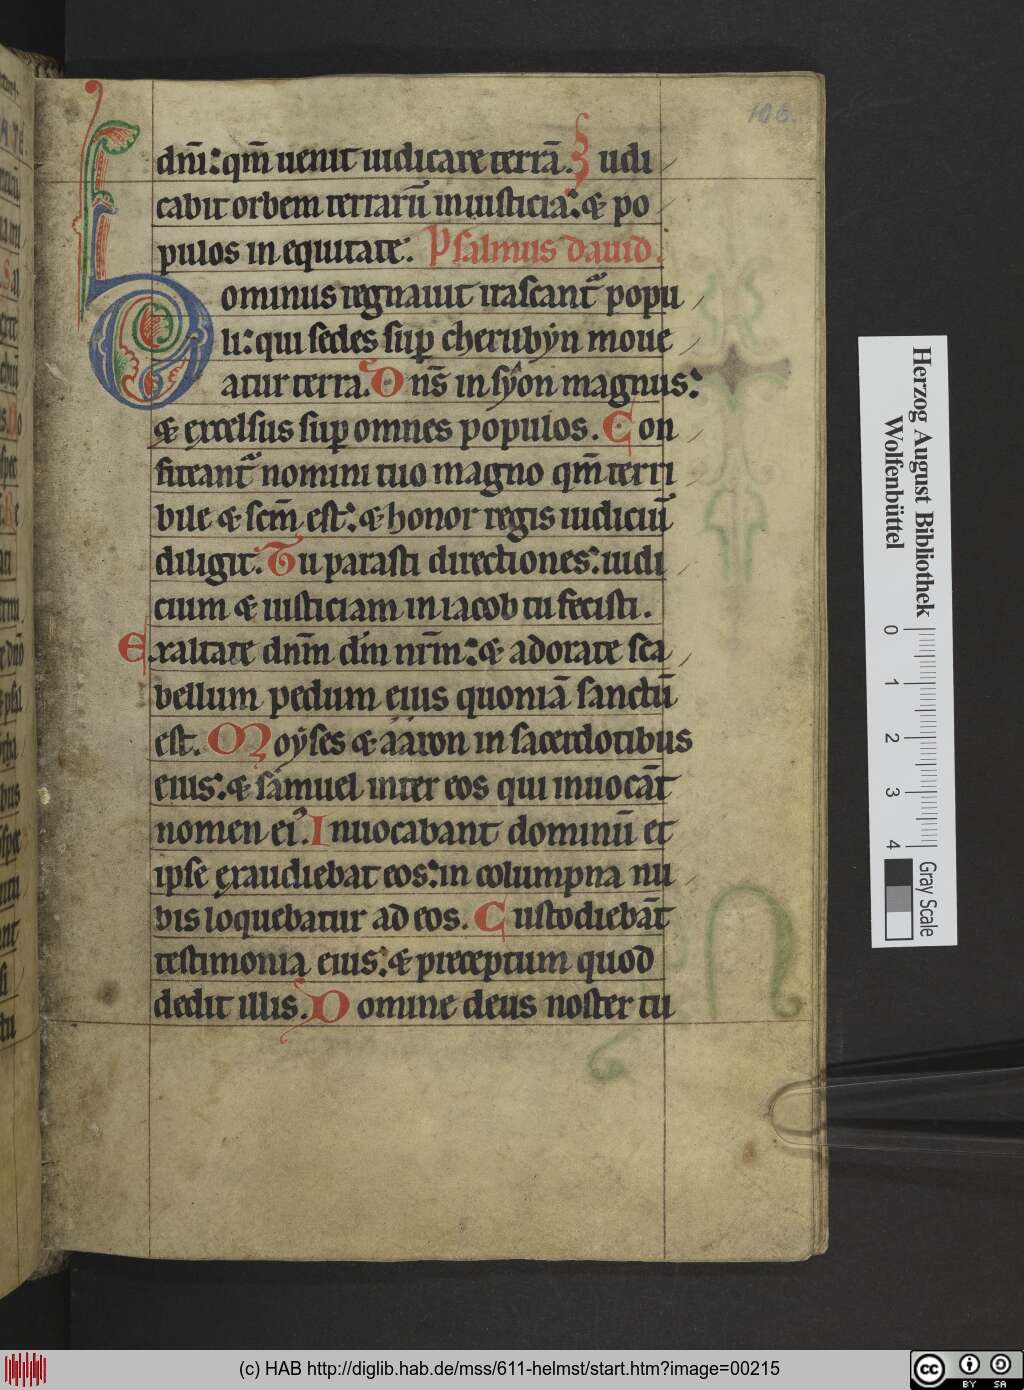 106.
dn̄i: qm̄ uenit iudicare terrā. Iudi
cabit orbem terrarū in iusticia: & po
pulos in equitate: Psalmus dauid.
Dominus regnauit irascant᷑ popu
li: qui sedes sup cherubẏn moue
atur terra. Dn̄s in sẏon magnus:
& excelsus sup omnes populos. Con
fiteant᷑ nomini tuo magno qm̄ terri
bile & scm̄ est: & honor regis iudiciū
diligit. Tu parasti directiones: iudi
cium & iusticiam in iacob tu fecisti.
Exaltate dn̄m dm̄ nr̄m: & adorate sca
bellum pedum eius quoniā sanctū
est. Moẏses & aaron in sacerdotibus
eius: & samuel inter eos qui inuocāt
nomen ei᾽. Inuocabant dominū et
ipse ęxaudiebat eos: in columpna nu
bis loquebatur ad eos. Custodiebāt
testimonia eius: & preceptum quod
dedit illis. Domine deus noster tu
Herzog August Bibliothek
Wolfenbüttel
0 1 2 3 4
Gray Scale
(c) HAB http://diglib.hab.de/mss/611-helmst/start.htm?image=00215
cc BY SA